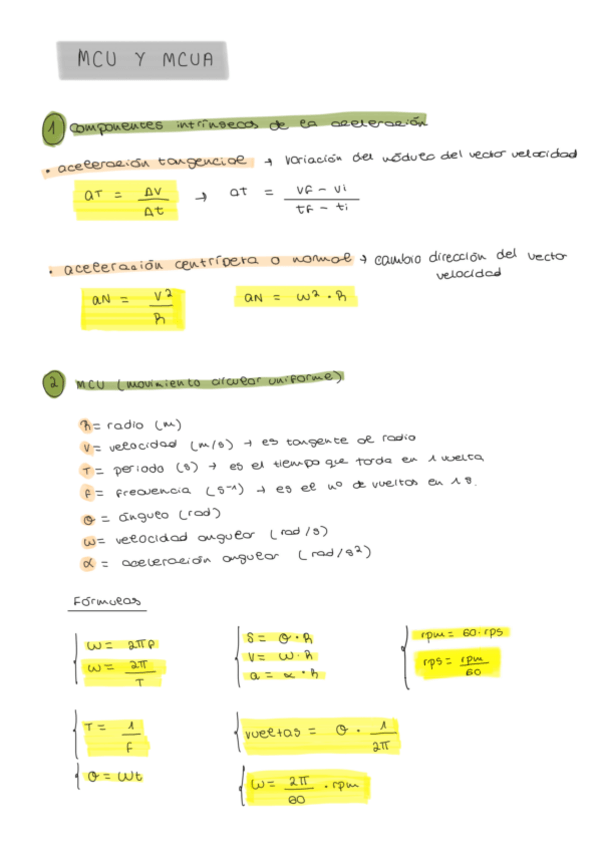 MCU Y MCUA
1 componentes intrínsecas de la aceleración
• aceleración tangencial → variación del módulo del vector velocidad
aT = ΔV / Δt → aT = vF - vi / tF - ti
• aceleración centrípeta o normal → cambio dirección del vector
velocidad
aN = V² / R aN = ω² · R
2 MCU (movimiento circular uniforme)
R = radio (m)
V = velocidad (m/s) → es tangente al radio
T = periodo (s) → es el tiempo que tarda en 1 vuelta
F = frecuencia (s⁻¹) → es el nº de vueltas en 1 s.
θ = ángulo (rad)
ω = velocidad angular (rad/s)
α = aceleración angular (rad/s²)
Fórmulas
ω = 2πF
ω = 2π / T
s = θ · R
V = ω · R
a = α · R
rpm = 60 · rps
rps = rpm / 60
T = 1 / F
θ = ωt
vueltas = θ · 1 / 2π
ω = 2π / 60 · rpm